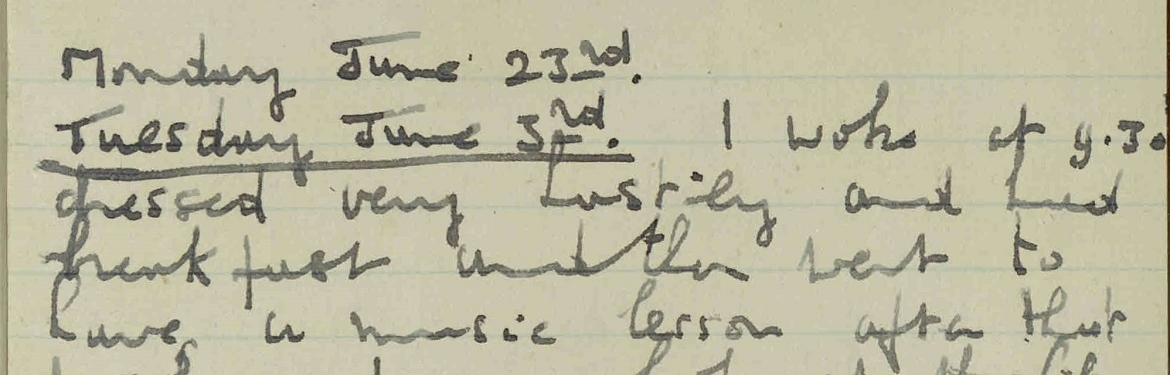 Monday June 23rd.
Tuesday June 3rd. I woke at 9.30
dressed very hastily and had
breakfast and then went to
have a music lesson after that